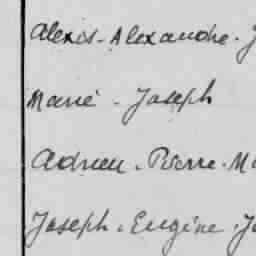 Alexis - Alexandre - J
Marie - Joseph
Adrien - Pierre - Ma
Joseph - Eugène - Jo